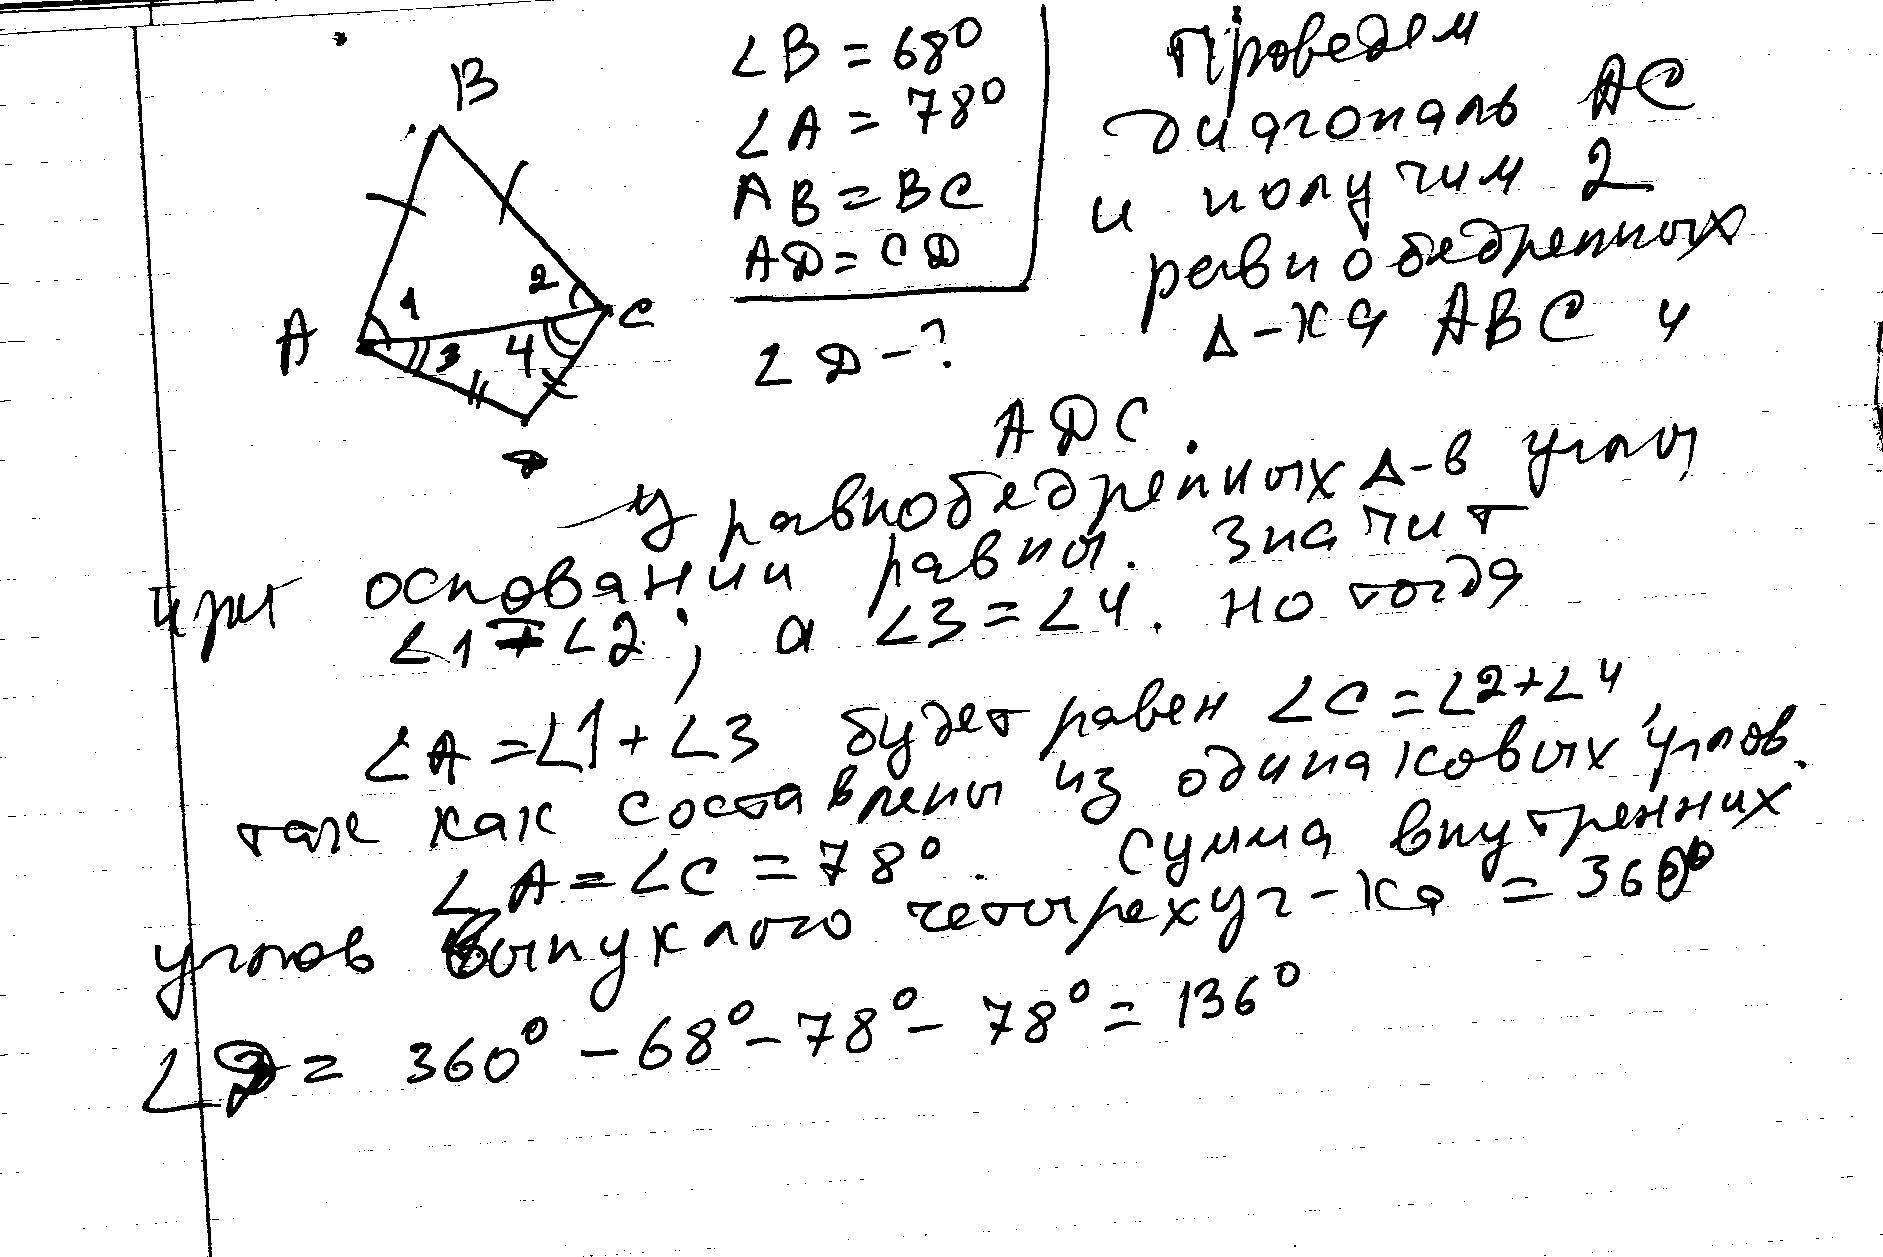 B
A
C
D
1
2
3
4
∠B = 68°
∠A = 78°
AB = BC
AD = CD
∠D - ?
Проведем
диагональ AC
и получим 2
равнобедренных
Δ-ка ABC и
ADC.
У равнобедренных Δ-в углы
при основании равны. Значит
∠1 = ∠2; а ∠3 = ∠4. Но тогда
∠A = ∠1 + ∠3 будет равен ∠C = ∠2 + ∠4,
так как составлены из одинаковых углов.
∠A = ∠C = 78°. Сумма внутренних
углов выпуклого четырехуг-ка = 360°
∠D = 360° - 68° - 78° - 78° = 136°